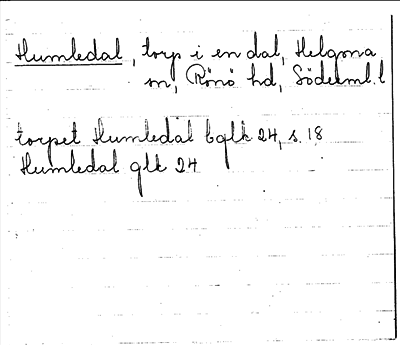 Humledal, torp i en dal, Helgona
sn, Rönö hd, Söderml. l
torpet Humledal bglk 24, s. 18
Humledal glk 24